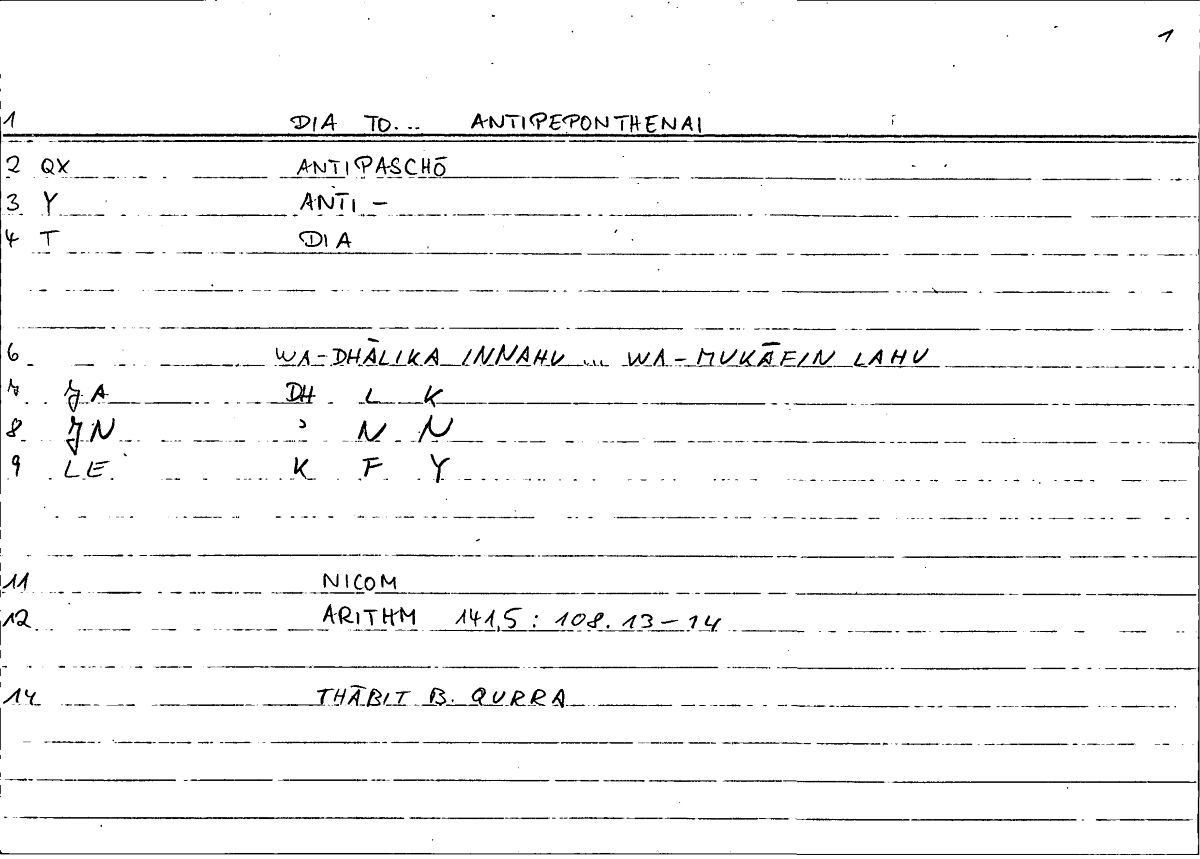 1
1 DIA TO... ANTIPEPONTHENAI
2 QX ANTIPASCHŌ
3 Y ANTI –
4 T DIA
6 WA-DHĀLIKA INNAHU ... WA-MUKĀFIN LAHU
7 JA DH L K
8 JN ʾ N N
9 LE K F Y
11 NICOM
12 ARITHM 141,5 : 108.13–14
14 THĀBIT B. QURRA